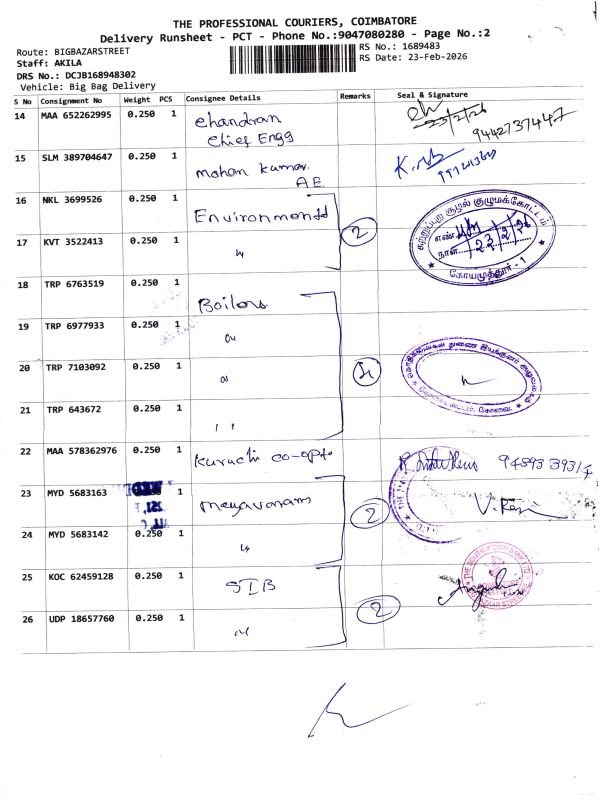 THE PROFESSIONAL COURIERS, COIMBATORE
Delivery Runsheet - PCT - Phone No.:9047080280 - Page No.:2
Route: BIGBAZARSTREET
RS No.: 1689483
Staff: AKILA
RS Date: 23-Feb-2026
DRS No.: DCJB168948302
Vehicle: Big Bag Delivery
S No Consignment No Weight PCS Consignee Details Remarks Seal & Signature
14 MAA 652262995 0.250 1 chandran
chief Engg
23/2/26
9442737447
15 SLM 389704647 0.250 1 mohan kumar.
A.E.
16 NKL 3699526 0.250 1 Environmental
2
சுற்றுப்புற சூழல்
எண்
நாள் 23/2/26
கோயமுத்தூர் - 1
17 KVT 3522413 0.250 1 "
18 TRP 6763519 0.250 1 Boilers
19 TRP 6977933 0.250 1 "
20 TRP 7103092 0.250 1 "
கோவை.
21 TRP 643672 0.250 1 "
22 MAA 578362976 0.250 1 Kuruchi co-opt
23 MYD 5683163 0.250 1
2
24 MYD 5683142 0.250 1 "
25 KOC 62459128 0.250 1 SIB
2
THE SOUTH INDIAN BANK LTD
26 UDP 18657760 0.250 1 "